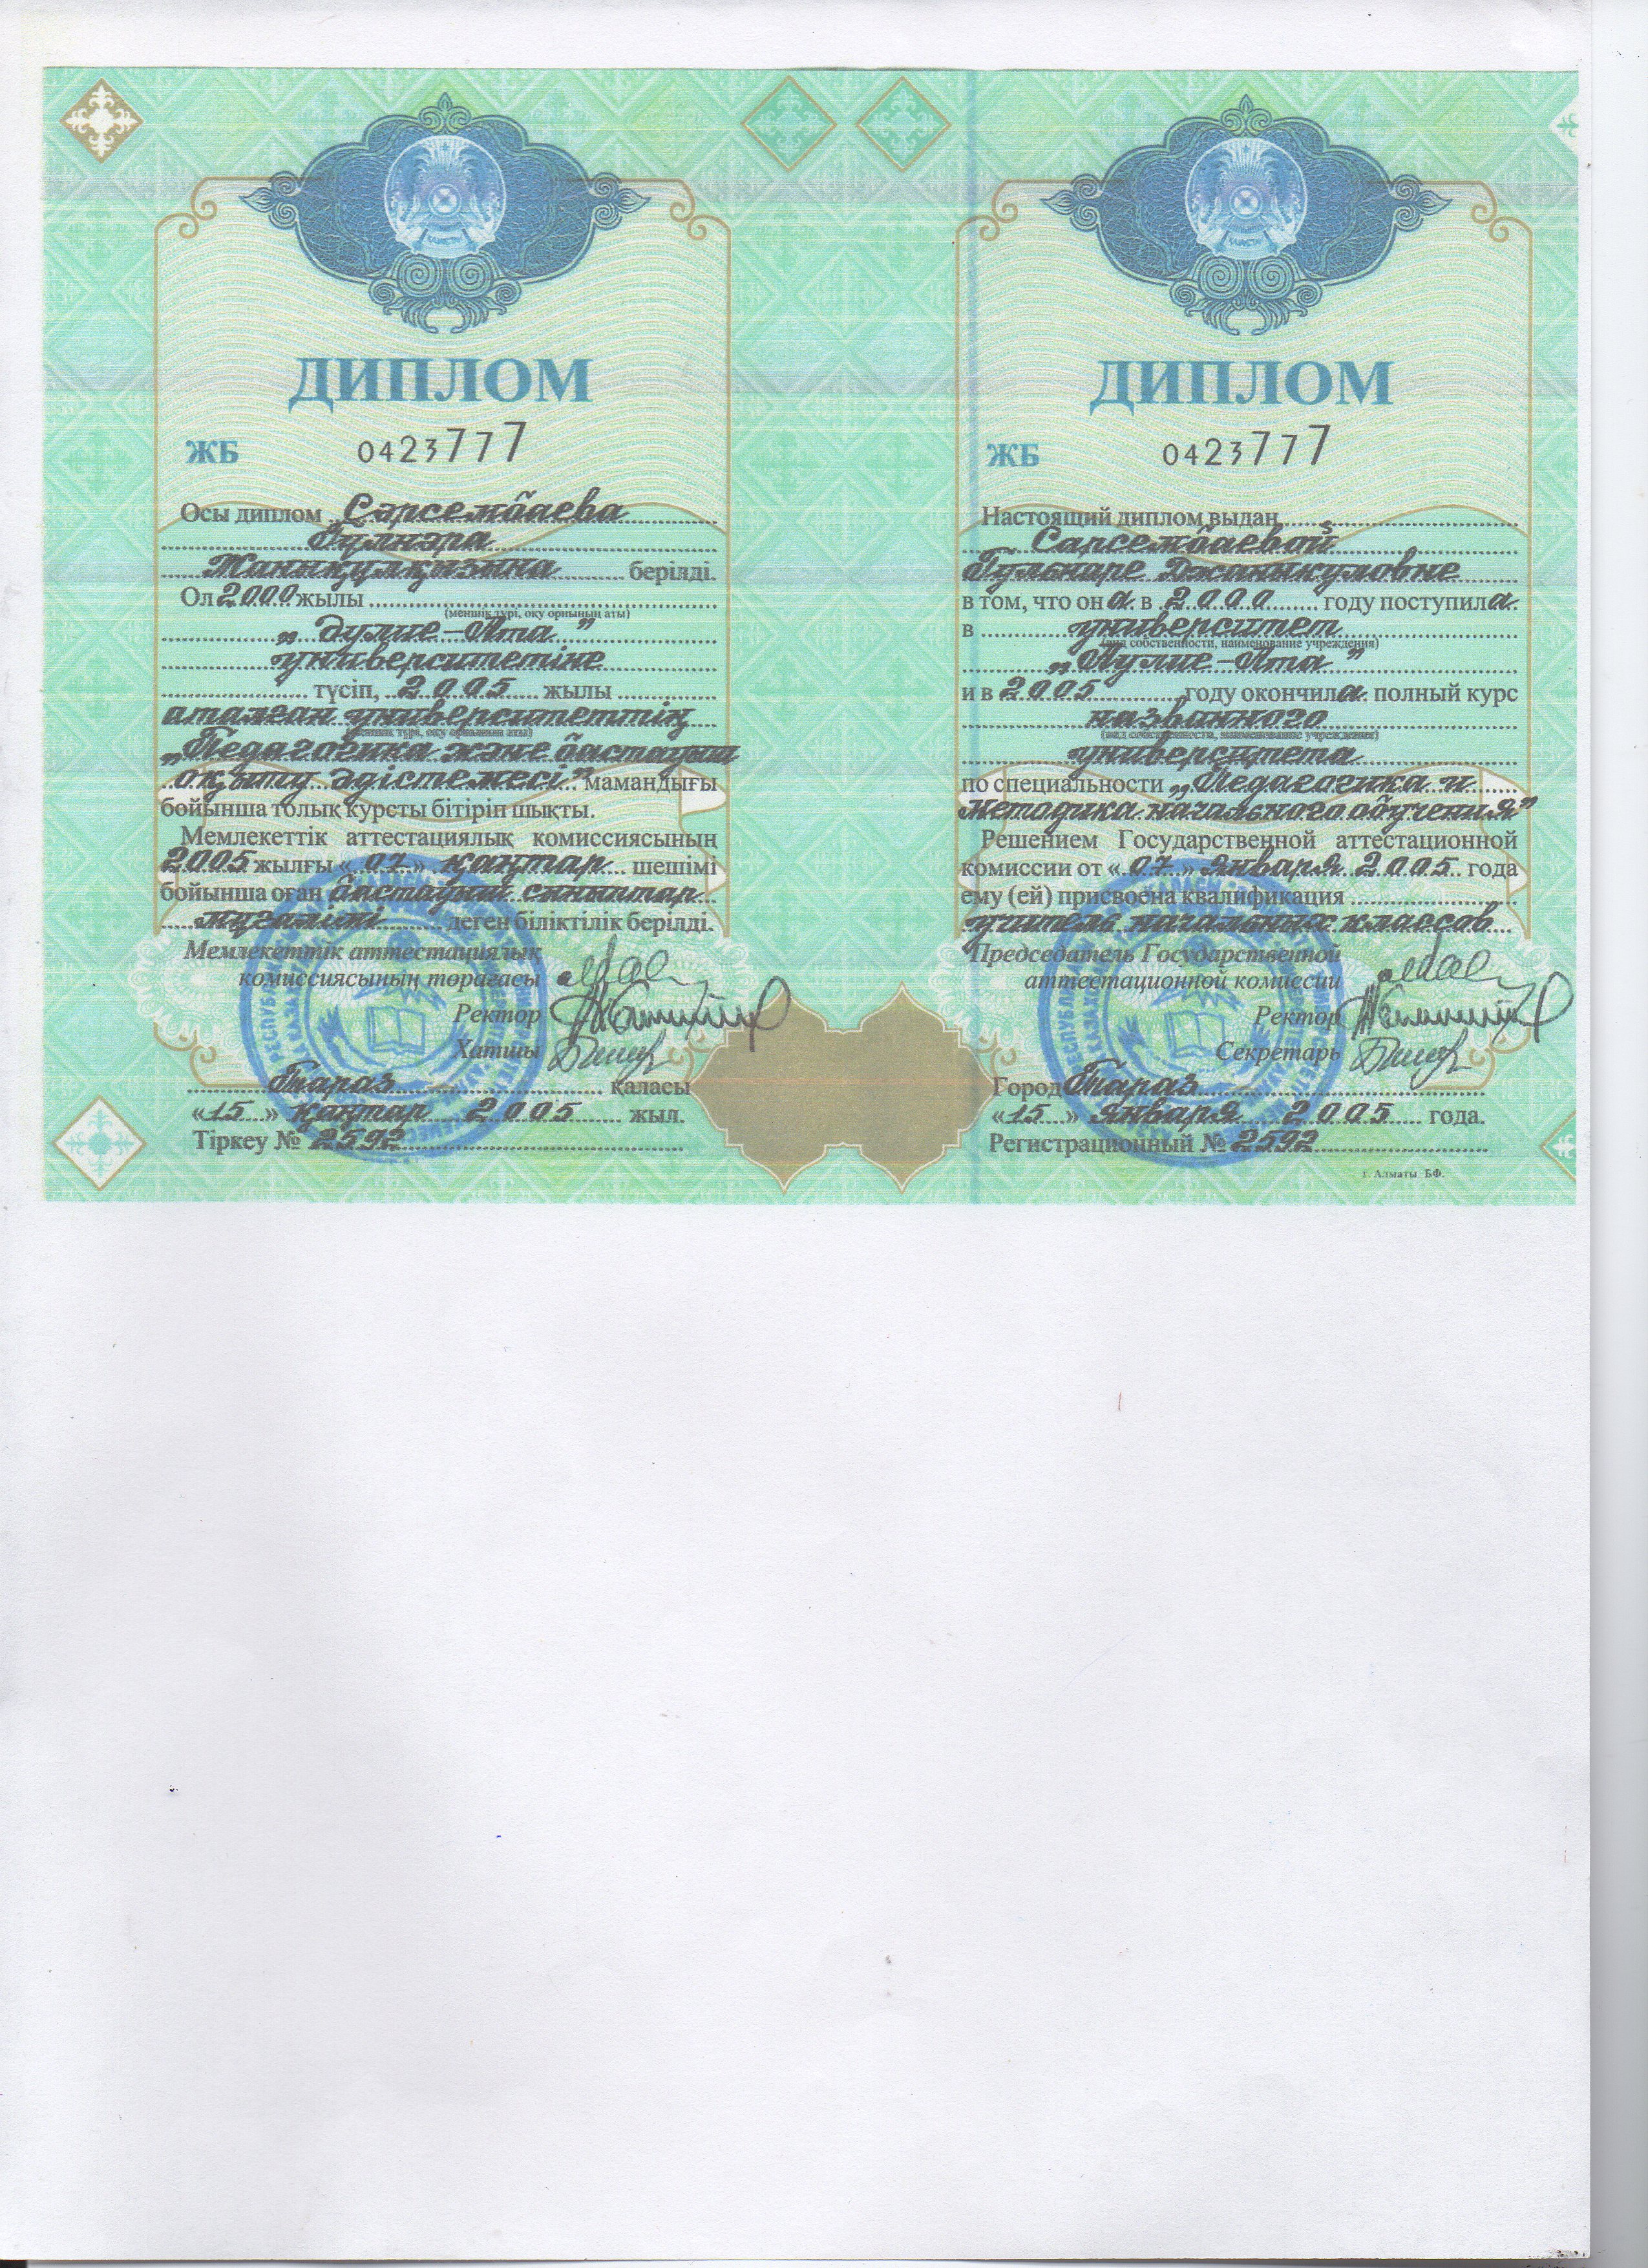 ДИПЛОМ
ЖБ 0423777
Осы диплом Сәрсембаева
Гүлнәра
Жаниқулқизина берілді.
Ол 2000 жылы
(меншік түрі, оқу орнының аты)
„Әулие-Ата”
университетіне
түсіп, 2005 жылы
аталған университеттің
(меншік түрі, оқу орнының аты)
„Педагогика және бастауыш
оқыту әдістемесі” мамандығы
бойынша толық курсты бітіріп шықты.
Мемлекеттік аттестациялық комиссиясының
2005 жылғы «07» қаңтар шешімі
бойынша оған бастауыш сыныптар
мұғалімі деген біліктілік берілді.
Мемлекеттік аттестациялық
комиссиясының төрағасы
Ректор
Хатшы
Тараз қаласы
«15» қаңтар 2005 жыл.
Тіркеу № 2592
ДИПЛОМ
ЖБ 0423777
Настоящий диплом выдан
Сарсембаевой
Гульнаре Джаникуловне
в том, что она в 2000 году поступила
в университет
(вид собственности, наименование учреждения)
„Аулие-Ата”
и в 2005 году окончила полный курс
названного
(вид собственности, наименование учреждения)
университета
по специальности „Педагогика и
методика начального обучения”
Решением Государственной аттестационной
комиссии от «07» января 2005 года
ему (ей) присвоена квалификация
учитель начальных классов
Председатель Государственной
аттестационной комиссии
Ректор
Секретарь
Город Тараз
«15» января 2005 года.
Регистрационный № 2592
г. Алматы БФ.